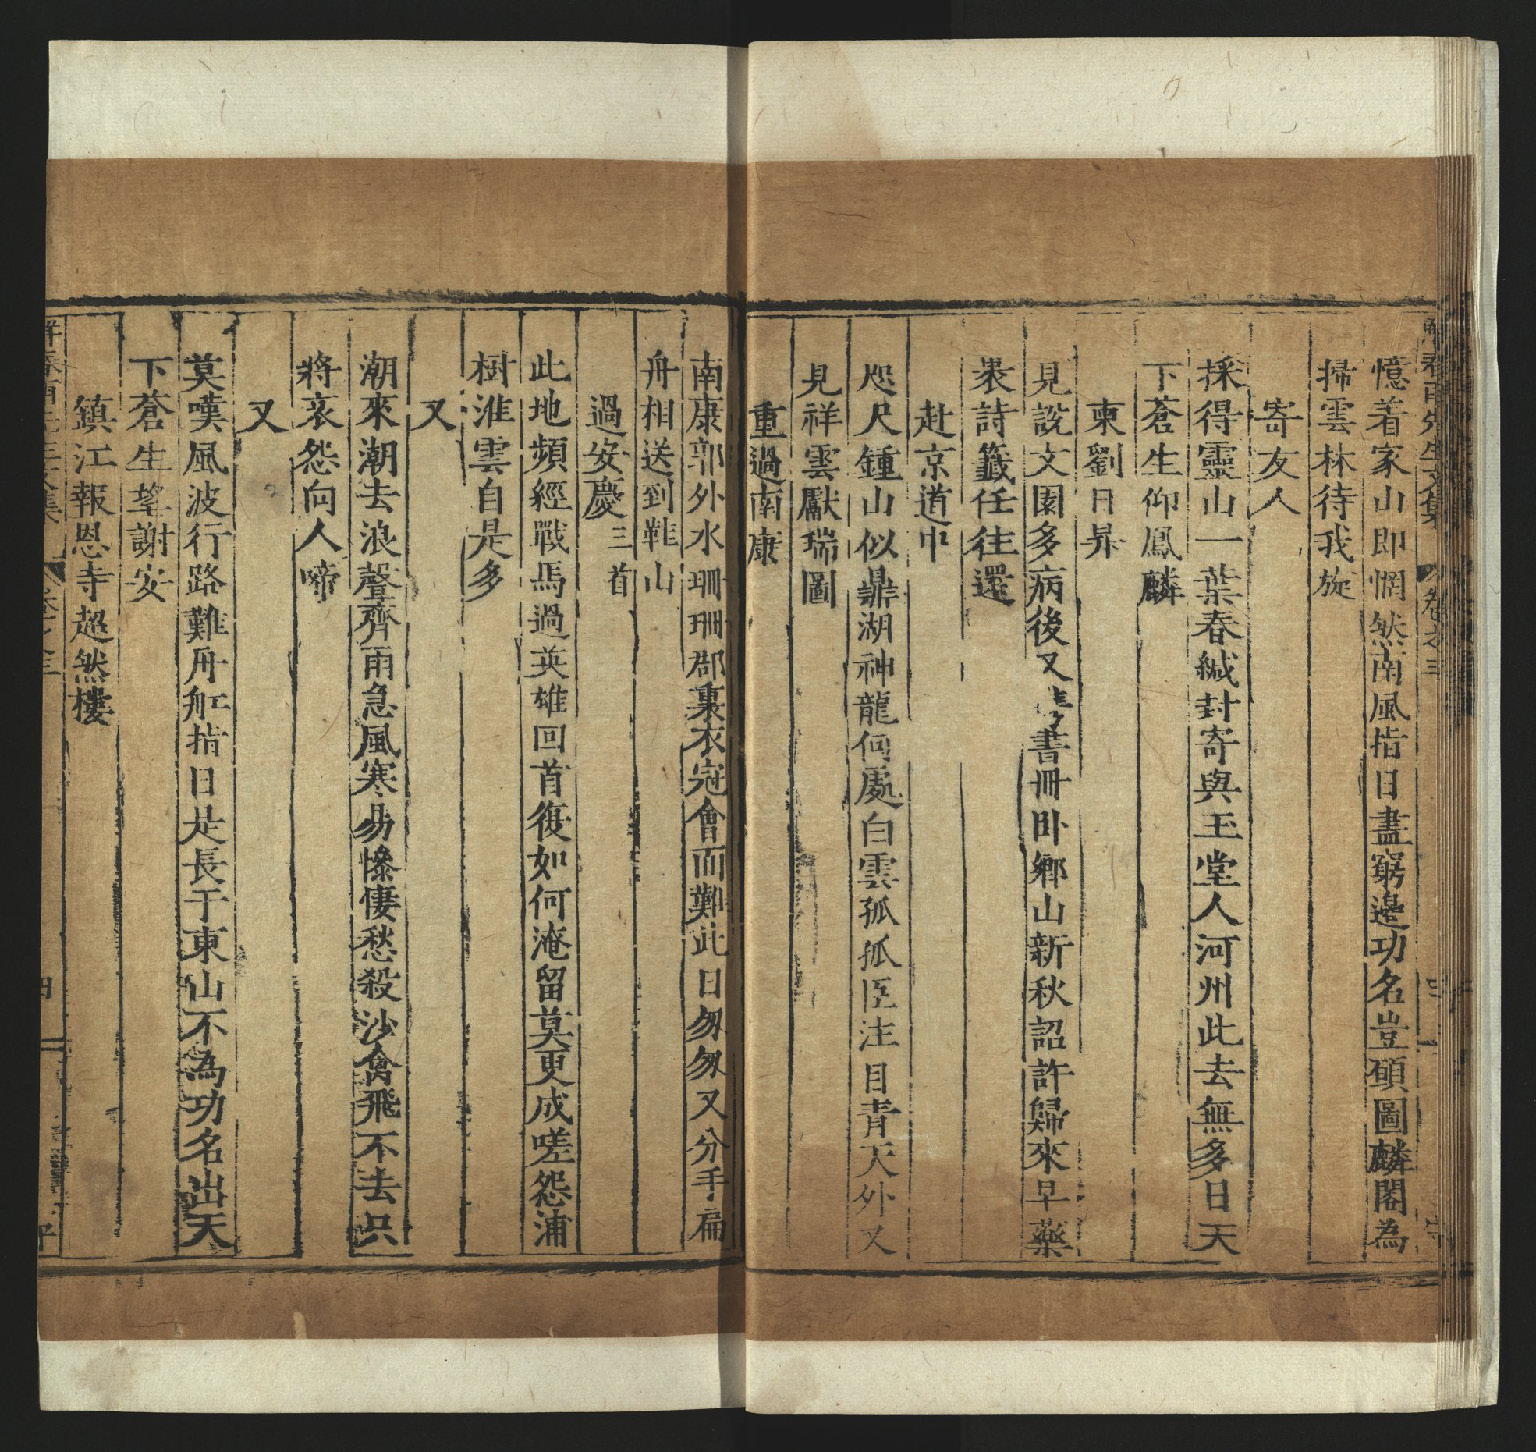 解春雨先生文集 卷之三
憶着家山即惘然南風指日盡窮邊功名豈碩圖麟閣為
掃雲林待我旋
寄友人
採得靈山一葉春緘封寄與玉堂人河州此去無多日天
下蒼生仰鳳麟
柬劉日昇
見說文園多病後又 書冊卧鄉山新秋詔許歸來早藥
裹詩籤任往還
赴京道中
咫尺鍾山似鼎湖神龍何處白雲孤孤臣注目青天外又
見祥雲獻瑞圖
重過南康
南康郭外水珊珊郡裏衣冠會面難此日匆匆又分手扁
舟相送到鞋山
過安慶三首
此地頻經戰馬過英雄回首復如何淹留莫更成嗟怨浦
樹淮雲自是多
又
潮來潮去浪聲齊雨急風寒易慘悽愁殺沙禽飛不去只
將哀怨向人啼
又
莫嘆風波行路難舟舡指日是長干東山不為功名出天
下蒼生望謝安
鎮江報恩寺超然樓
解春雨先生文集 卷之三 四